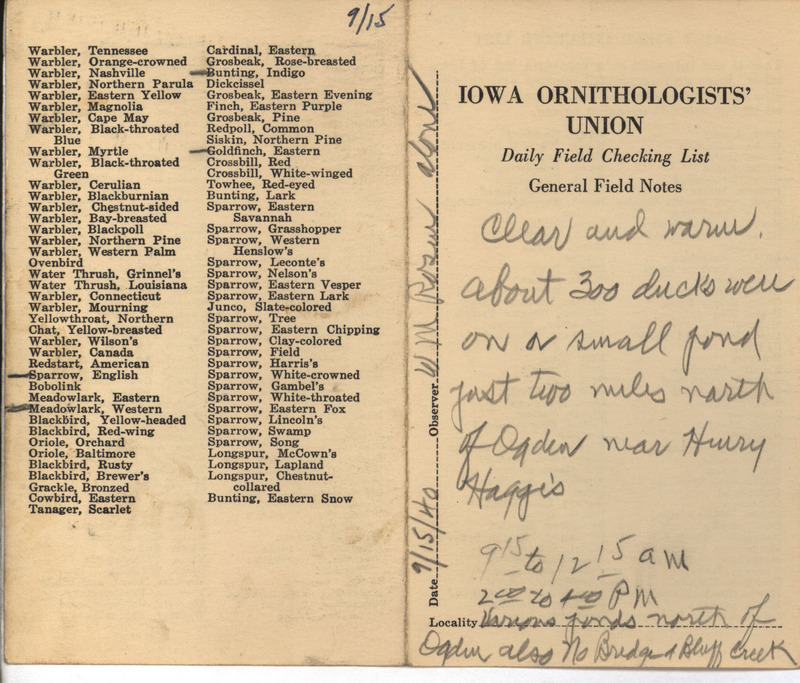 9/15
Warbler, Tennessee
Warbler, Orange-crowned
Warbler, Nashville
Warbler, Northern Parula
Warbler, Eastern Yellow
Warbler, Magnolia
Warbler, Cape May
Warbler, Black-throated
Blue
Warbler, Myrtle
Warbler, Black-throated
Green
Warbler, Cerulian
Warbler, Blackburnian
Warbler, Chestnut-sided
Warbler, Bay-breasted
Warbler, Blackpoll
Warbler, Northern Pine
Warbler, Western Palm
Ovenbird
Water Thrush, Grinnel's
Water Thrush, Louisiana
Warbler, Connecticut
Warbler, Mourning
Yellowthroat, Northern
Chat, Yellow-breasted
Warbler, Wilson's
Warbler, Canada
Redstart, American
Sparrow, English
Bobolink
Meadowlark, Eastern
Meadowlark, Western
Blackbird, Yellow-headed
Blackbird, Red-wing
Oriole, Orchard
Oriole, Baltimore
Blackbird, Rusty
Blackbird, Brewer's
Grackle, Bronzed
Cowbird, Eastern
Tanager, Scarlet
Cardinal, Eastern
Grosbeak, Rose-breasted
Bunting, Indigo
Dickcissel
Grosbeak, Eastern Evening
Finch, Eastern Purple
Grosbeak, Pine
Redpoll, Common
Siskin, Northern Pine
Goldfinch, Eastern
Crossbill, Red
Crossbill, White-winged
Towhee, Red-eyed
Bunting, Lark
Sparrow, Eastern
Savannah
Sparrow, Grasshopper
Sparrow, Western
Henslow's
Sparrow, Leconte's
Sparrow, Nelson's
Sparrow, Eastern Vesper
Sparrow, Eastern Lark
Junco, Slate-colored
Sparrow, Tree
Sparrow, Eastern Chipping
Sparrow, Clay-colored
Sparrow, Field
Sparrow, Harris's
Sparrow, White-crowned
Sparrow, Gambel's
Sparrow, White-throated
Sparrow, Eastern Fox
Sparrow, Lincoln's
Sparrow, Swamp
Sparrow, Song
Longspur, McCown's
Longspur, Lapland
Longspur, Chestnut-
collared
Bunting, Eastern Snow
Date 9/15/40 Observer W M Rosen alone
IOWA ORNITHOLOGISTS'
UNION
Daily Field Checking List
General Field Notes
Clear and warm.
About 300 ducks were
on a small pond
just two miles north
of Ogden near Henry
Haggis
9 15 to 12 15 a M
2 00 to 4 00 P M
Locality Various ponds north of
Ogden also No Bridge & Bluff Creek